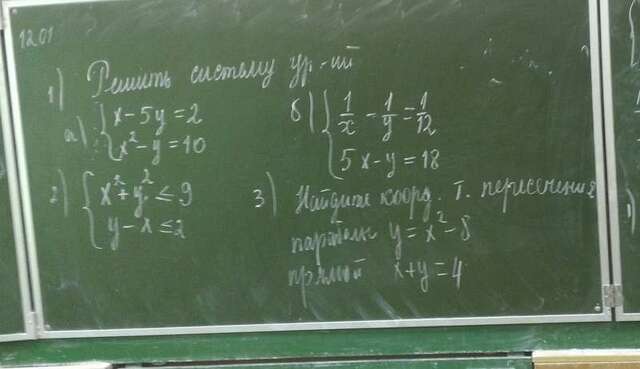 12.01
1) Решить систему ур-ий
а) { x - 5y = 2
x² - y = 10
б) { 1/x - 1/y = 1/12
5x - y = 18
2) { x² + y² ≤ 9
y - x ≤ 2
3) Найдите коорд. т. пересечения
параболы y = x² - 8
прямой x + y = 4